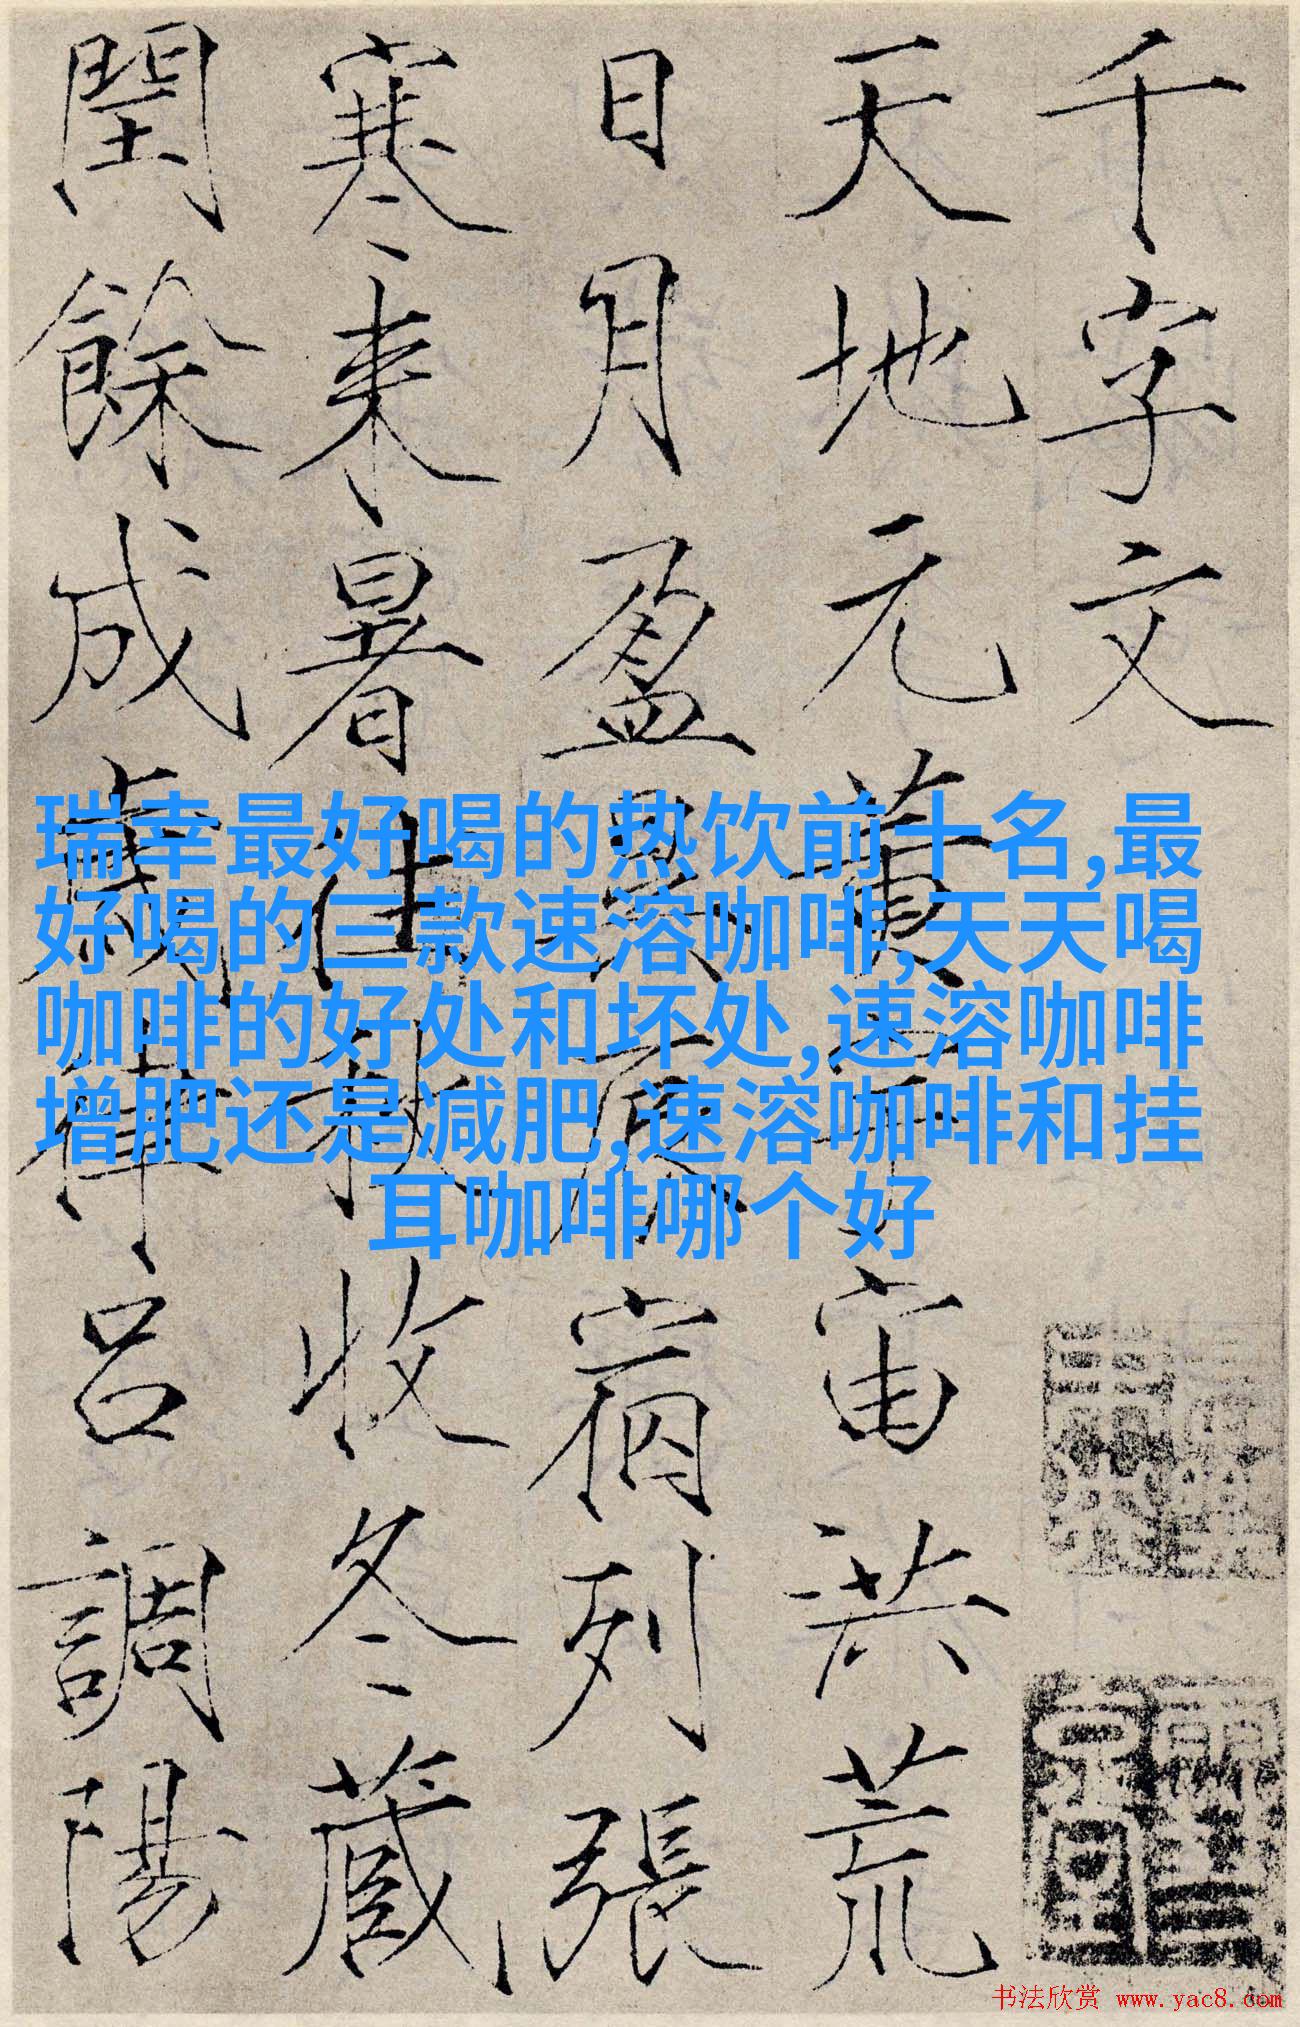 千字文
天地元黄宇宙洪荒
日月盈昃辰宿列張
寒来暑往秋收冬藏
閏餘成歲律呂調陽
瑞幸最好喝的热饮前十名,最
好喝的三款速溶咖啡,天天喝
咖啡的好处和坏处,速溶咖啡
增肥还是减肥,速溶咖啡和挂
耳咖啡哪个好
书法欣赏 www.yac8.com